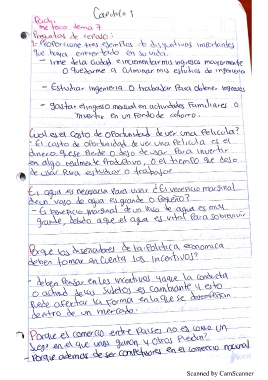 Capitulo 1
Pauly:
me toco tema 7
Preguntas de repaso:
1- Proporcione tres ejemplos de disyuntivas importantes
que haya enfrentado en su vida.
- Irme de la ciudad e incrementar mis ingresos mayormente
o Quedarme a culminar mis estudios de
- Estudiar ingenieria o trabajar Para obtener ingresos
- Gastar el ingreso mensual en actividades Familiares o
Invertir en un Fondo de ahorro.
Cual es el costo de oportunidad de ver una Pelicula?
- El costo de oportunidad de ver una Pelicula es el
dinero que se Pierde o dejo de usar Para invertir
en algo realmente Productivo, o el tiempo que dejo
de usar Para estudiar o trabajar
El agua es necesaria para vivir ¿El beneficio marginal
de un vaso de agua es grande o Pequeño?
- El beneficio marginal de un vaso de agua es muy
grande, debido a que el agua es vital Para sobrevivir
Porque los diseñadores de la Politica economica
deben tomar en Cuenta los Incentivos?
- deben Pensar en los incentivos ya que la conducta
o actitud de los sujetos es cambiante y esto
Puede afectar la forma en la que se
dentro de un mercado.
Porque el comercio entre Paises no es como un
juego en el que unos ganan y otros Pierden?
- Porque ademas de ser competidores en el comercio
Scanned by CamScanner